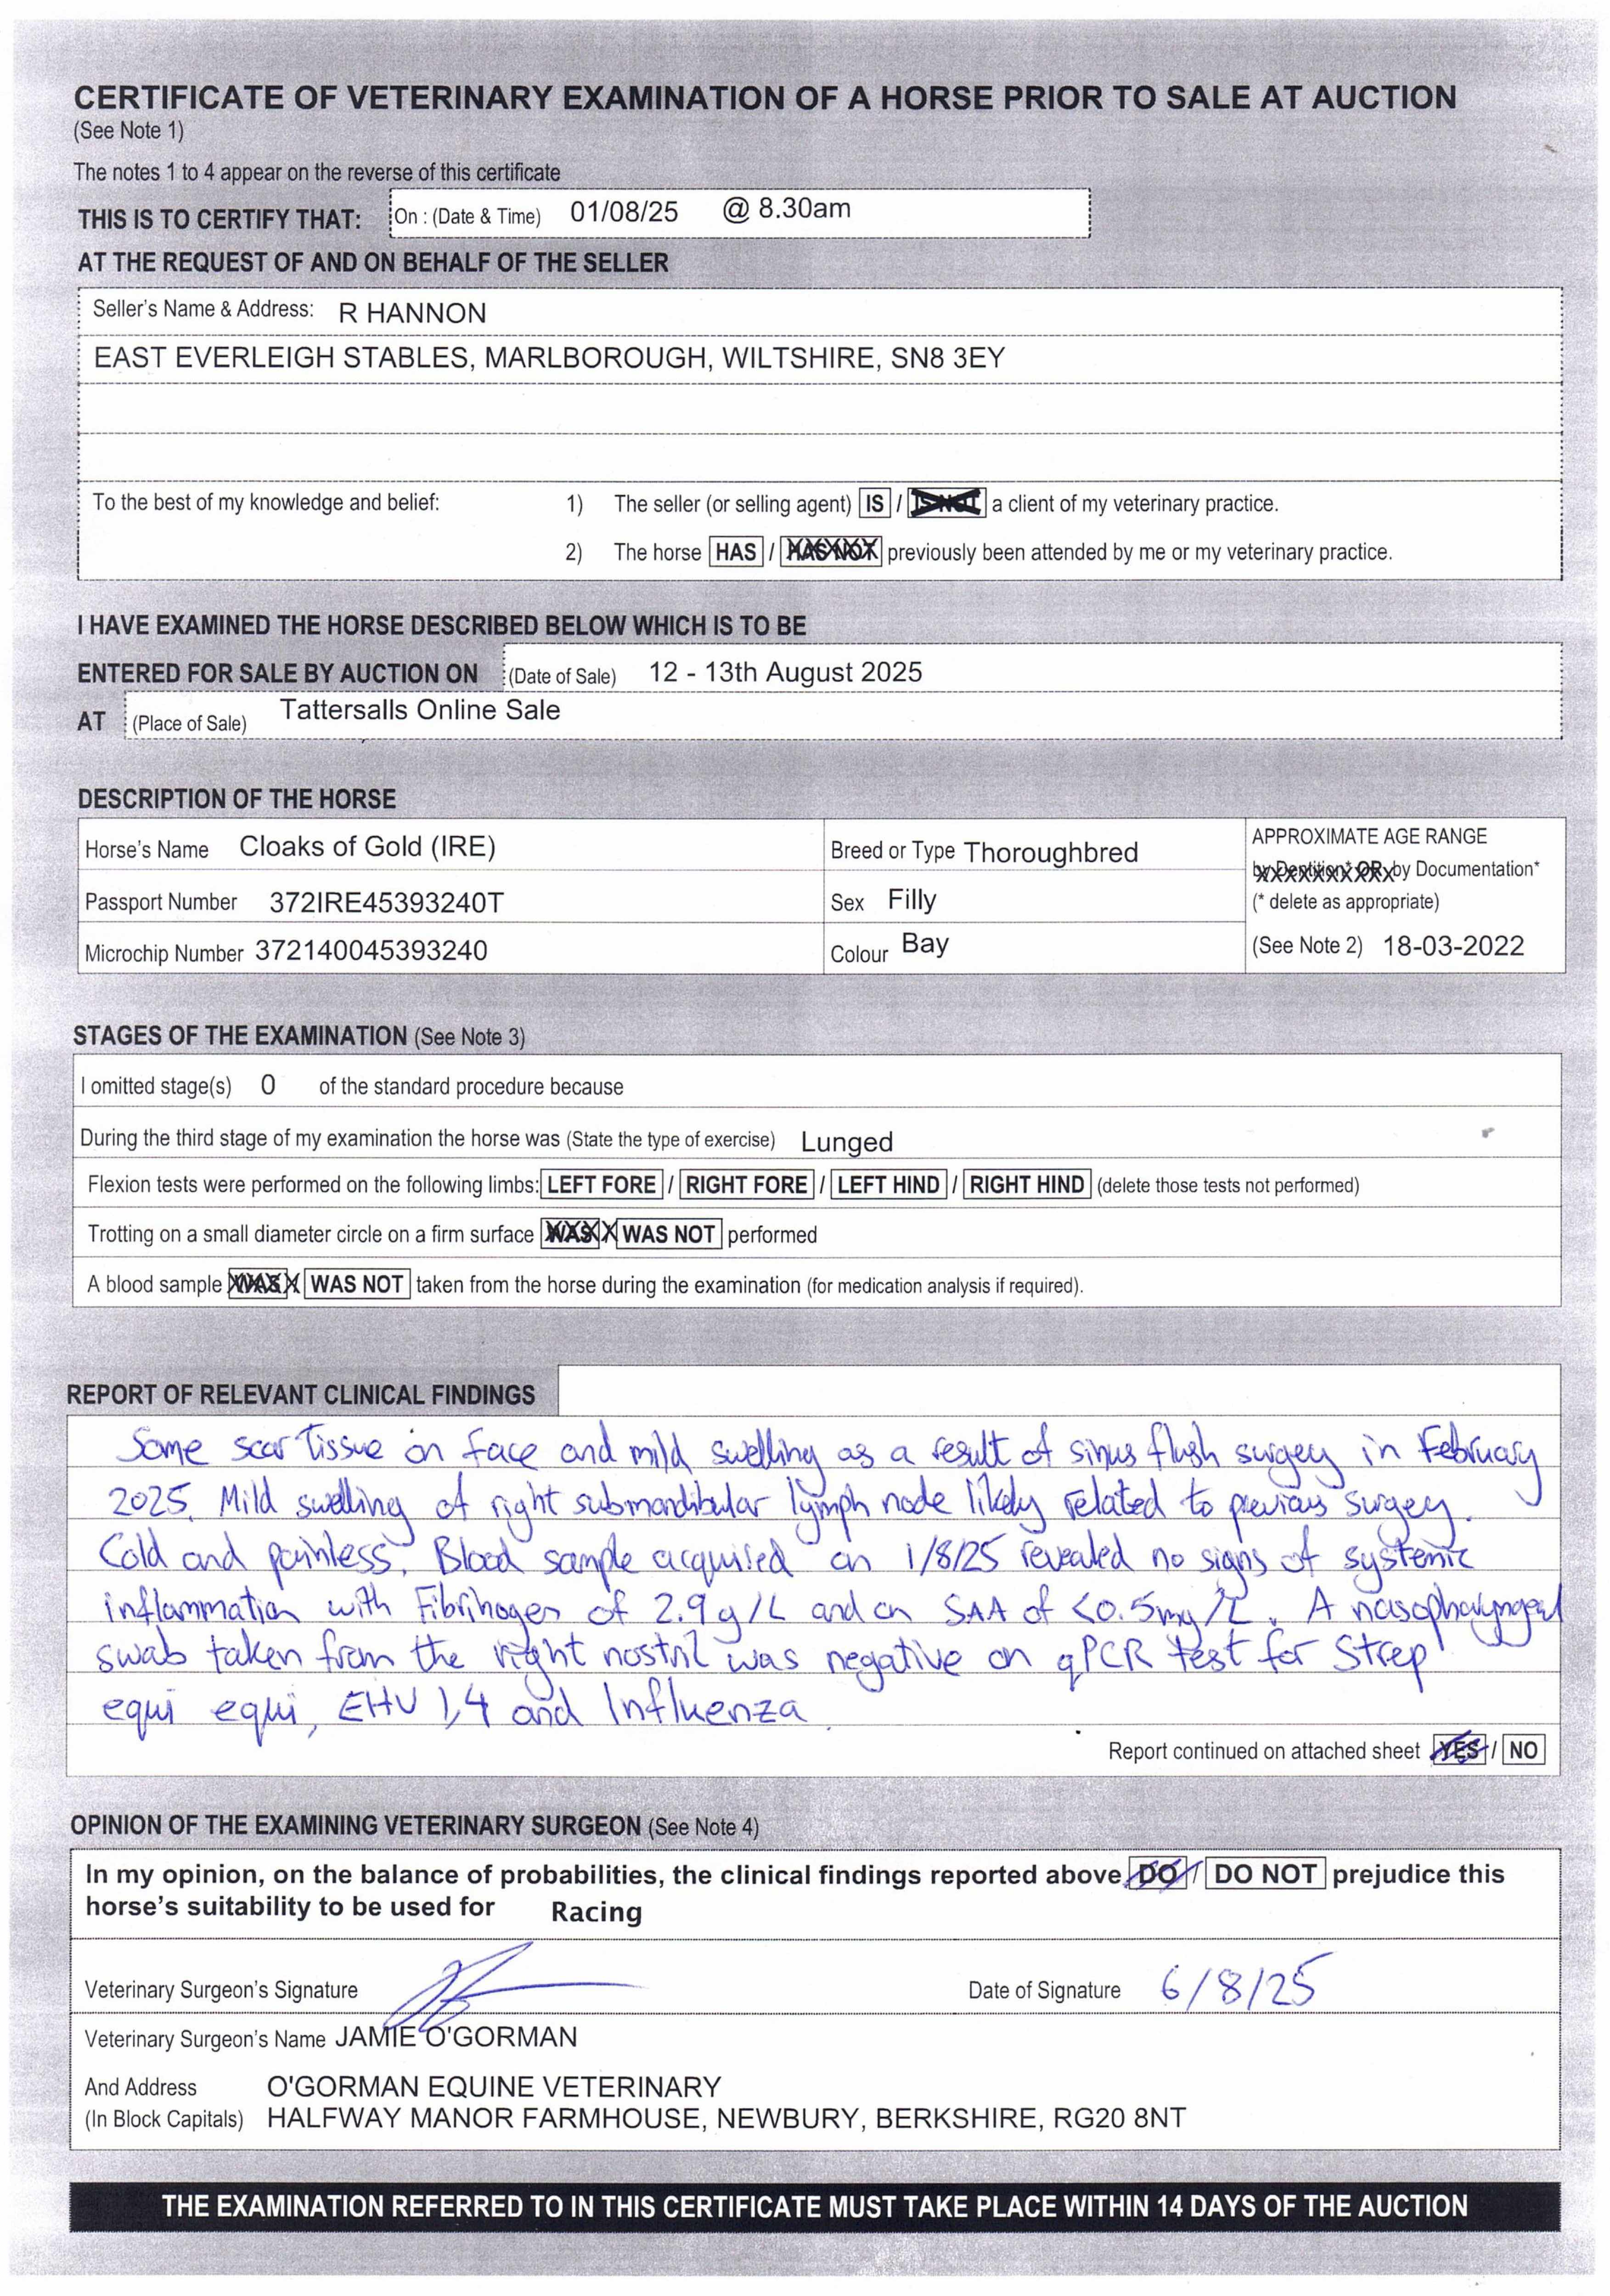 CERTIFICATE OF VETERINARY EXAMINATION OF A HORSE PRIOR TO SALE AT AUCTION
(See Note 1)
The notes 1 to 4 appear on the reverse of this certificate
THIS IS TO CERTIFY THAT: On : (Date & Time) 01/08/25 @ 8.30am
AT THE REQUEST OF AND ON BEHALF OF THE SELLER
Seller's Name & Address: R HANNON
EAST EVERLEIGH STABLES, MARLBOROUGH, WILTSHIRE, SN8 3EY
To the best of my knowledge and belief: 1) The seller (or selling agent) IS / IS NOT a client of my veterinary practice.
2) The horse HAS / HAS NOT previously been attended by me or my veterinary practice.
I HAVE EXAMINED THE HORSE DESCRIBED BELOW WHICH IS TO BE
ENTERED FOR SALE BY AUCTION ON (Date of Sale) 12 - 13th August 2025
AT (Place of Sale) Tattersalls Online Sale
DESCRIPTION OF THE HORSE
Horse's Name Cloaks of Gold (IRE)
Passport Number 372IRE45393240T
Microchip Number 372140045393240
Breed or Type Thoroughbred
Sex Filly
Colour Bay
APPROXIMATE AGE RANGE
by Dentition* OR by Documentation*
(* delete as appropriate)
(See Note 2) 18-03-2022
STAGES OF THE EXAMINATION (See Note 3)
I omitted stage(s) 0 of the standard procedure because
During the third stage of my examination the horse was (State the type of exercise) Lunged
Flexion tests were performed on the following limbs: LEFT FORE / RIGHT FORE / LEFT HIND / RIGHT HIND (delete those tests not performed)
Trotting on a small diameter circle on a firm surface WAS / WAS NOT performed
A blood sample WAS / WAS NOT taken from the horse during the examination (for medication analysis if required).
REPORT OF RELEVANT CLINICAL FINDINGS
Some scar tissue on face and mild swelling as a result of sinus flush surgey in February
2025. Mild swelling of right submandibular lymph node likely related to previous surgey.
Cold and painless. Blood sample acquired on 1/8/25 revealed no signs of systemic
inflammation with Fibrinogen of 2.9 g/L and an SAA of <0.5mg/L. A nasopharyngeal
swab taken from the right nostril was negative on qPCR test for Strep
equi equi, EHV 1,4 and Influenza.
Report continued on attached sheet YES / NO
OPINION OF THE EXAMINING VETERINARY SURGEON (See Note 4)
In my opinion, on the balance of probabilities, the clinical findings reported above DO / DO NOT prejudice this
horse's suitability to be used for Racing
Veterinary Surgeon's Signature Date of Signature 6/8/25
Veterinary Surgeon's Name JAMIE O'GORMAN
And Address O'GORMAN EQUINE VETERINARY
(In Block Capitals) HALFWAY MANOR FARMHOUSE, NEWBURY, BERKSHIRE, RG20 8NT
THE EXAMINATION REFERRED TO IN THIS CERTIFICATE MUST TAKE PLACE WITHIN 14 DAYS OF THE AUCTION